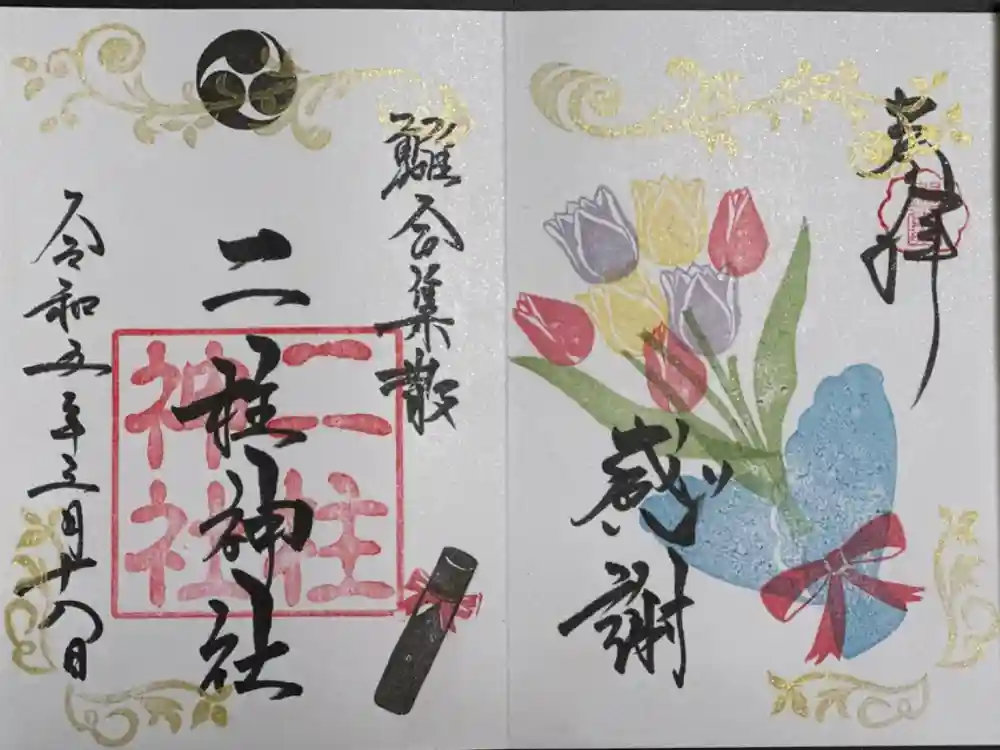 奉拝
感謝
離合集散
二柱神社
二柱
神社
令和五年三月十八日